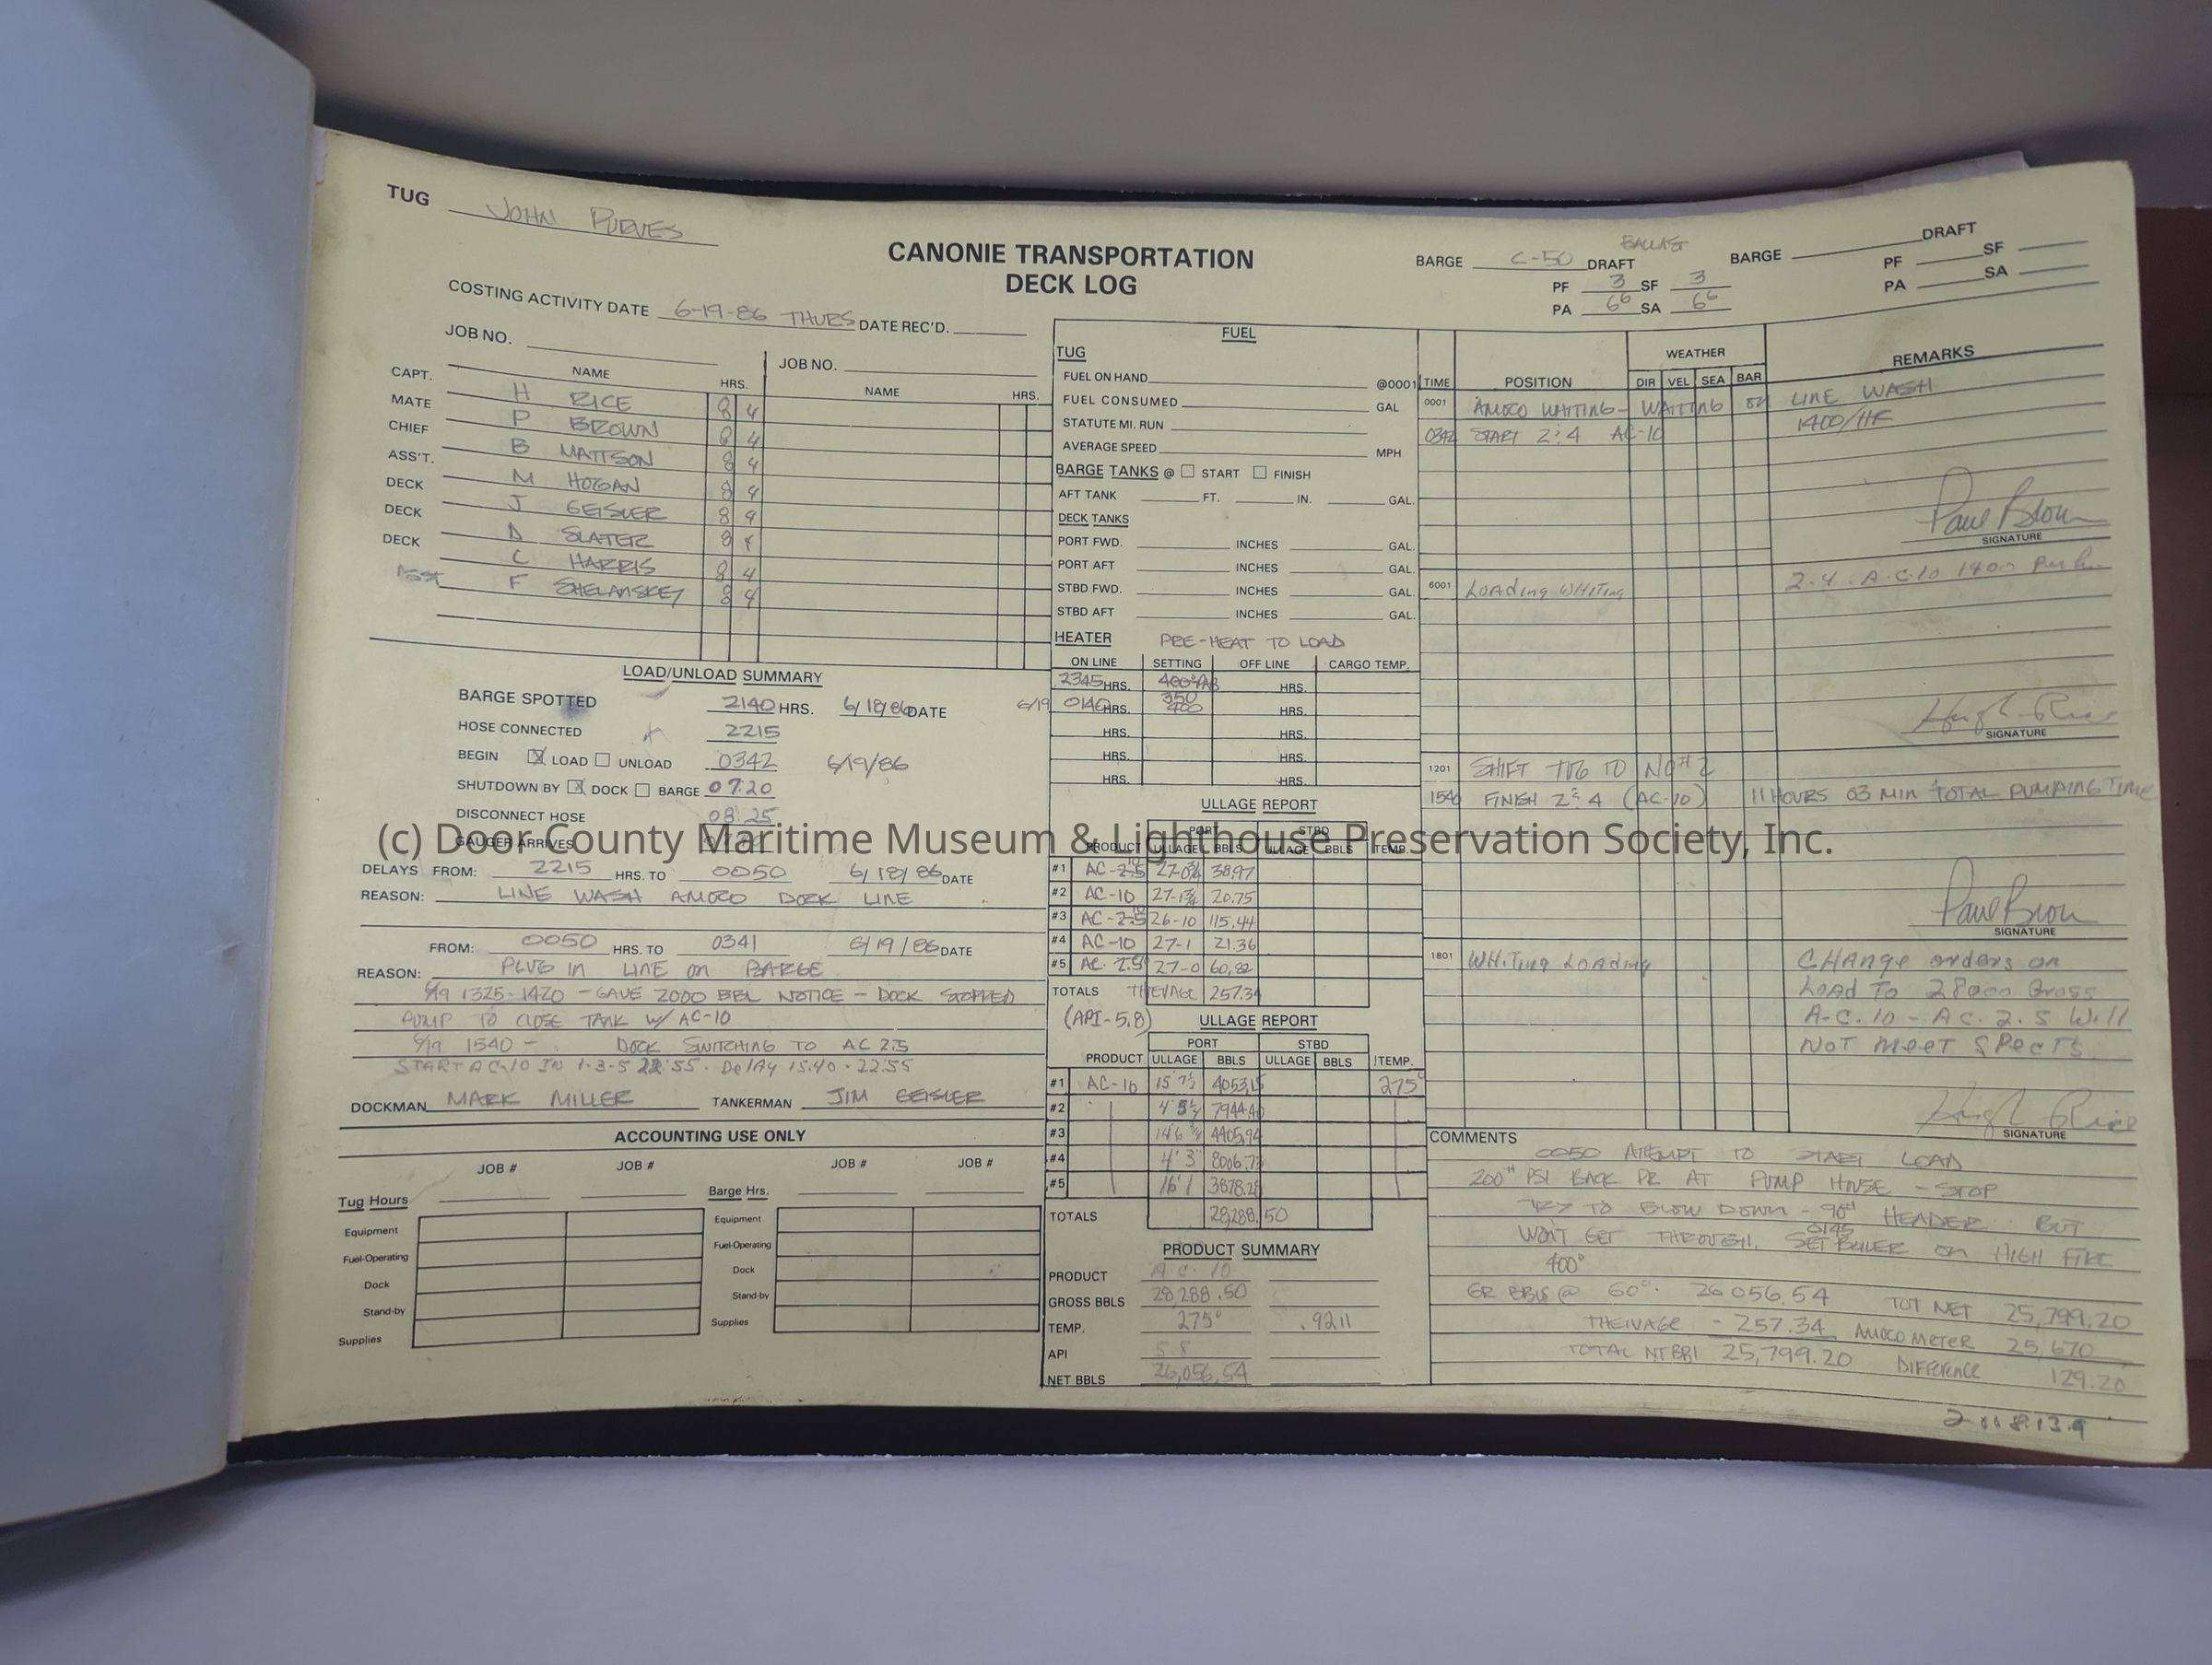 TUG JOHN PURVES
CANONIE TRANSPORTATION
DECK LOG
BARGE C-50 DRAFT BALLAST
PF 3 SF 3
PA 6⁶ SA 6⁶
BARGE DRAFT
PF SF
PA SA
COSTING ACTIVITY DATE 6-19-86 THURS DATE REC'D.
JOB NO. JOB NO.
NAME HRS. NAME HRS.
CAPT. H RICE 8 4
MATE P BROWN 8 4
CHIEF B MATTSON 8 4
ASS'T. M HOGAN 8 4
DECK J GEISLER 8 4
DECK D SLATER 8 4
DECK C HARRIS 8 4
ASST F SHELANSKEY 8 4
LOAD/UNLOAD SUMMARY
BARGE SPOTTED 2140 HRS. 6/18/86 DATE
HOSE CONNECTED 2215
BEGIN LOAD UNLOAD 0342 6/19/86
SHUTDOWN BY DOCK BARGE 07:20
DISCONNECT HOSE 08:25
GAUGER ARRIVES
DELAYS FROM: 2215 HRS. TO 0050 6/18/86 DATE
REASON: LINE WASH AMOCO DOCK LINE
FROM: 0050 HRS. TO 0341 6/19/86 DATE
REASON: PLUG IN LINE ON BARGE
6/19 1325-1420 - GAVE 2000 BBL NOTICE - DOCK STOPPED
PUMP TO CLOSE TANK W/ AC-10
6/19 1540 - DOCK SWITCHING TO AC 2.5
START AC-10 IN 1-3-5 22:55. DELAY 15:40 - 22:55
DOCKMAN MARK MILLER TANKERMAN JIM GEISLER
ACCOUNTING USE ONLY
JOB # JOB # JOB # JOB #
Tug Hours Barge Hrs.
Equipment Equipment
Fuel-Operating Fuel-Operating
Dock Dock
Stand-by Stand-by
Supplies Supplies
FUEL
TUG
FUEL ON HAND @0001
FUEL CONSUMED GAL
STATUTE MI. RUN
AVERAGE SPEED MPH
BARGE TANKS @ START FINISH
AFT TANK FT. IN. GAL.
DECK TANKS
PORT FWD. INCHES GAL.
PORT AFT INCHES GAL.
STBD FWD. INCHES GAL.
STBD AFT INCHES GAL.
HEATER PRE-HEAT TO LOAD
ON LINE SETTING OFF LINE CARGO TEMP.
2345 HRS. HRS.
6/19 0140 HRS. 350 400 HRS.
HRS. HRS.
HRS. HRS.
HRS. HRS.
ULLAGE REPORT
PORT STBD
PRODUCT ULLAGE BBLS ULLAGE BBLS TEMP.
#1 AC-2.5 10 27-0¾ 38.97
#2 AC-10 27-1¾ 20.75
#3 AC-2.5 10 26-10 115.44
#4 AC-10 27-1 21.36
#5 AC-2.5 10 27-0 60.82
TOTALS THEIVAGE 257.34
(API-5.8) ULLAGE REPORT
PORT STBD
PRODUCT ULLAGE BBLS ULLAGE BBLS TEMP.
#1 AC-10 15' 7½ 4053.15 275°
#2 7944.40
#3 4405.94
#4 4' 3" 8006.73
#5 16' 1 3878.28
TOTALS 28,288.50
PRODUCT SUMMARY
PRODUCT A.C. 10
GROSS BBLS 28,288.50
TEMP. 275° .9211
API 5.8
NET BBLS 26,056.54
WEATHER
TIME POSITION DIR VEL SEA BAR REMARKS
0001 AMOCO WHITING - WAITING ON LINE WASH
0342 START 2 & 4 AC-10 1400/HR
Paul Brown
SIGNATURE
6001 Loading WHITING 2-4. A.C.10 1400 Per hr
Hugh Rice
SIGNATURE
1201 SHIFT TUG TO NO# 2
1540 FINISH 2 & 4 (AC-10) 11 HOURS 03 MIN TOTAL PUMPING TIME
Paul Brown
SIGNATURE
1801 WHITING LOADING CHANGE orders on
Load To 28000 Gross
A-C.10 - AC. 2.5 Will
NOT MEET SPECTS
Hugh Rice
SIGNATURE
COMMENTS 0050 ATTEMPT TO START LOAD
200# PSI BACK PR AT PUMP HOUSE - STOP
TRY TO BLOW DOWN - 90# HEADER BUT
WON'T GET THROUGH. 0145 SET BOILER ON HIGH FIRE
400°
GR BBLS @ 60°. 26056.54 TOT NET 25,799.20
THEIVAGE - 257.34 AMOCO METER 25,670
TOTAL NT BBl 25,799.20 DIFFERENCE 129.20
2008.13.9
(c) Door County Maritime Museum & Lighthouse Preservation Society, Inc.